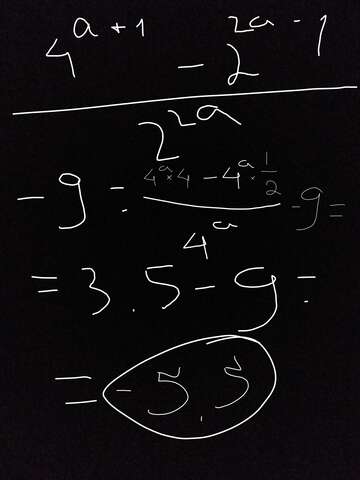 4^{a+1} - 2^{2a-1}
2^{2a}
- 9 = \frac{4^a × 4 - 4^a · \frac{1}{2}}{4^a} - 9 =
= 3.5 - 9 =
= -5,5